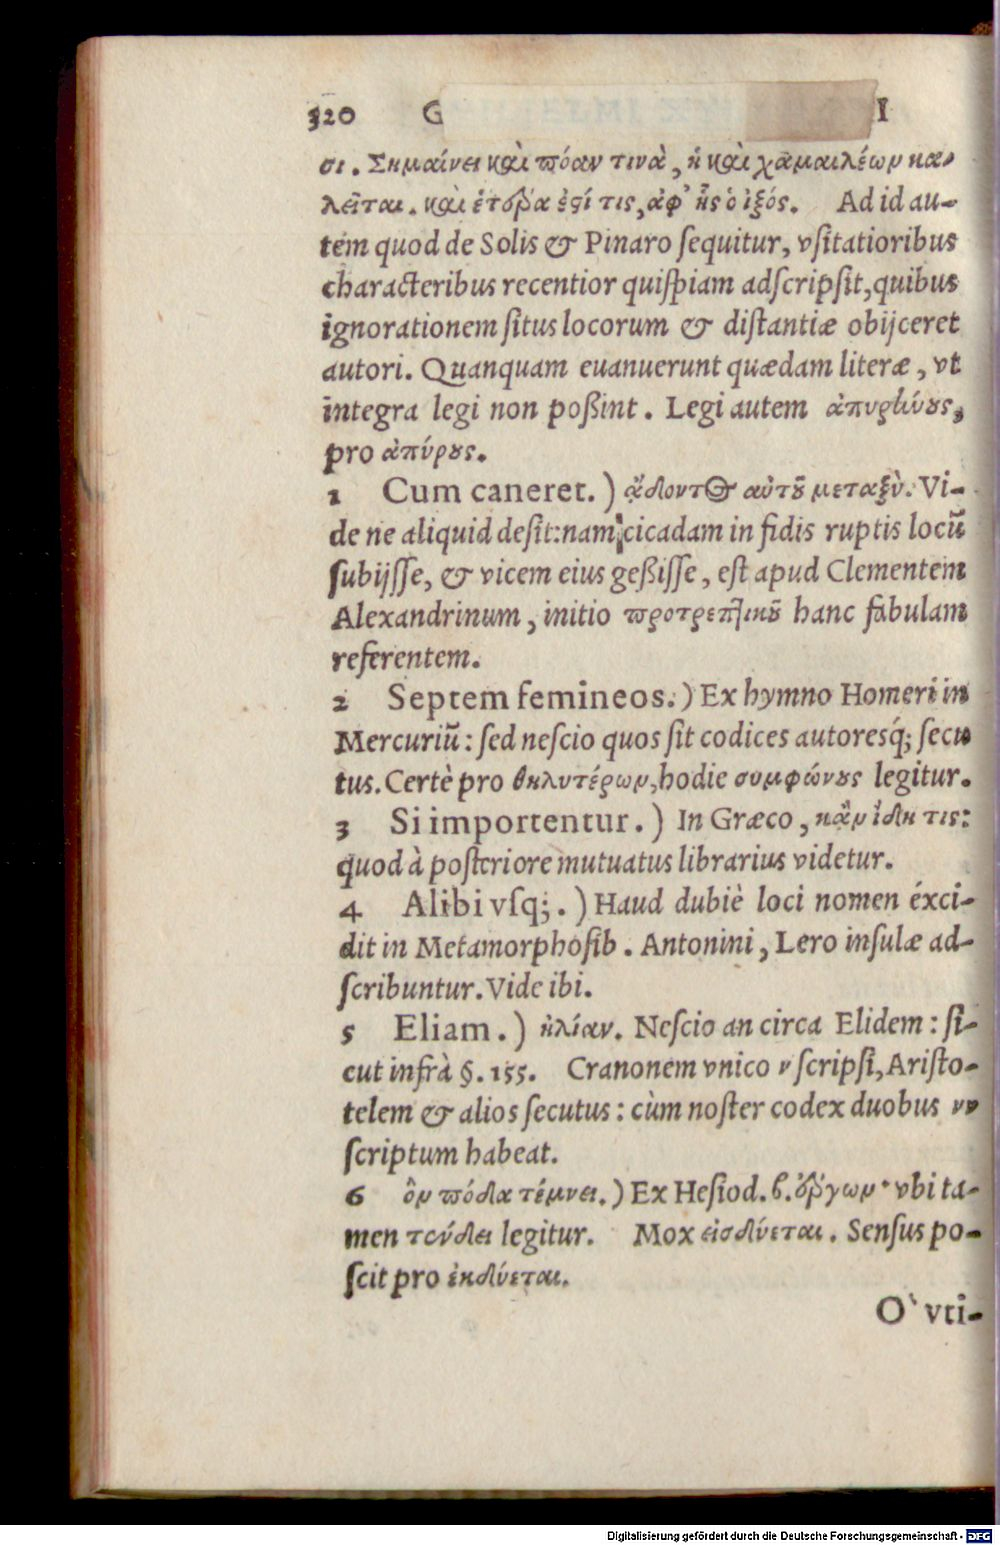 320 G I
σι. Σημαίνει καὶ πόαν τινὰ, ἢ καὶ χαμαιλέων κα-
λεῖται. καὶ ἑτέρα ἐστί τις, ἀφ' ἧς ὁ ἰξός. Ad id au-
tem quod de Solis & Pinaro ſequitur, vſitatioribus
characteribus recentior quiſpiam adſcripſit, quibus
ignorationem ſitus locorum & diſtantiæ obijceret
autori. Quanquam euanuerunt quædam literæ, vt
integra legi non poßint. Legi autem ἀπυρήνους,
pro ἀπύρους.
1 Cum caneret.) ᾄδοντος αὐτοῦ μεταξὺ. Vi-
de ne aliquid deſit: nam cicadam in fidis ruptis locũ
ſubijſſe, & vicem eius geßiſſe, eſt apud Clementem
Alexandrinum, initio προτρεπτικοῦ hanc fabulam
referentem.
2 Septem femineos.) Ex hymno Homeri in
Mercuriũ: ſed neſcio quos ſit codices autoresq́; ſecu
tus. Certè pro θηλυτέρων, hodie συμφώνους legitur.
3 Si importentur.) In Græco, κἂν ἴδῃ τις:
quod à poſteriore mutuatus librarius videtur.
4 Alibi vſq;.) Haud dubiè loci nomen éxci-
dit in Metamorphoſib. Antonini, Lero inſulæ ad-
ſcribuntur. Vide ibi.
5 Eliam.) ἠλίαν. Neſcio an circa Elidem: ſi-
cut infrà §. 155. Cranonem vnico ν ſcripſi, Ariſto-
telem & alios ſecutus: cùm noſter codex duobus νν
ſcriptum habeat.
6 ὃν πόδα τέμνει.) Ex Heſiod. β. ἔργων· vbi ta-
men τένδει legitur. Mox εἰσδύεται. Senſus po-
ſcit pro ἐκδύεται.
O' vti-
Digitalisierung gefördert durch die Deutsche Forschungsgemeinschaft - DFG